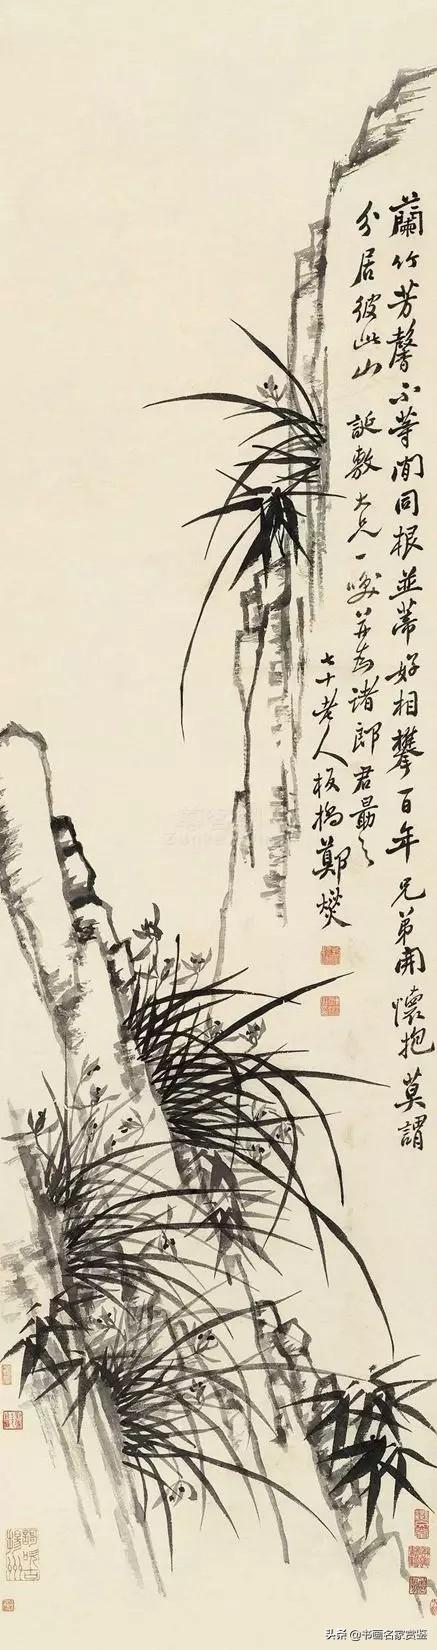 蘭竹芳馨不等閒同根並蒂好相攀百年兄弟開懷抱莫謂
分居彼此山 誕敷大兄一咲并為諸郎君勗之
七十老人板橋鄭燮
头条 @书画名家赏鉴